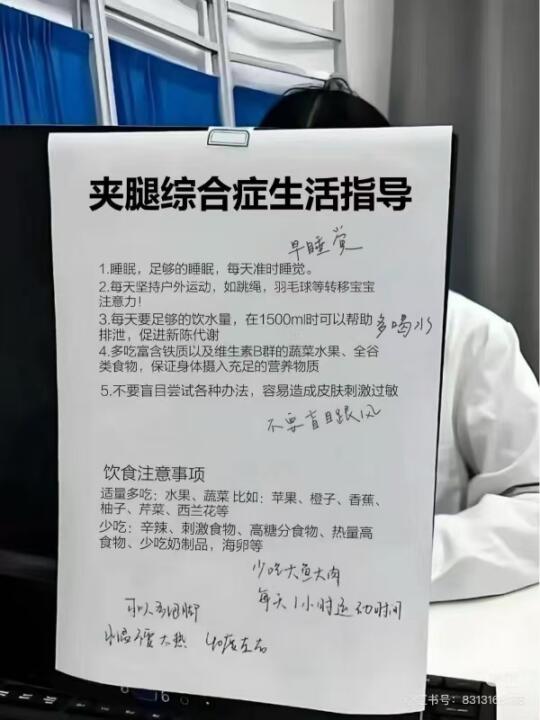 夹腿综合症生活指导
早睡觉
1.睡眠，足够的睡眠，每天准时睡觉。
2.每天坚持户外运动，如跳绳，羽毛球等转移宝宝
注意力！
3.每天要足够的饮水量，在1500ml时可以帮助
排泄，促进新陈代谢
多喝水
4.多吃富含铁质以及维生素B群的蔬菜水果、全谷
类食物，保证身体摄入充足的营养物质
5.不要盲目尝试各种办法，容易造成皮肤刺激过敏
不要盲目跟风
饮食注意事项
适量多吃：水果、蔬菜 比如：苹果、橙子、香蕉、
柚子、芹菜、西兰花等
少吃：辛辣、刺激食物、高糖分食物、热量高
食物、少吃奶制品，海卵等
少吃大鱼大肉
每天1小时运动时间
可以多泡脚
水温不要太热 40度左右
16
小红书号：8313168